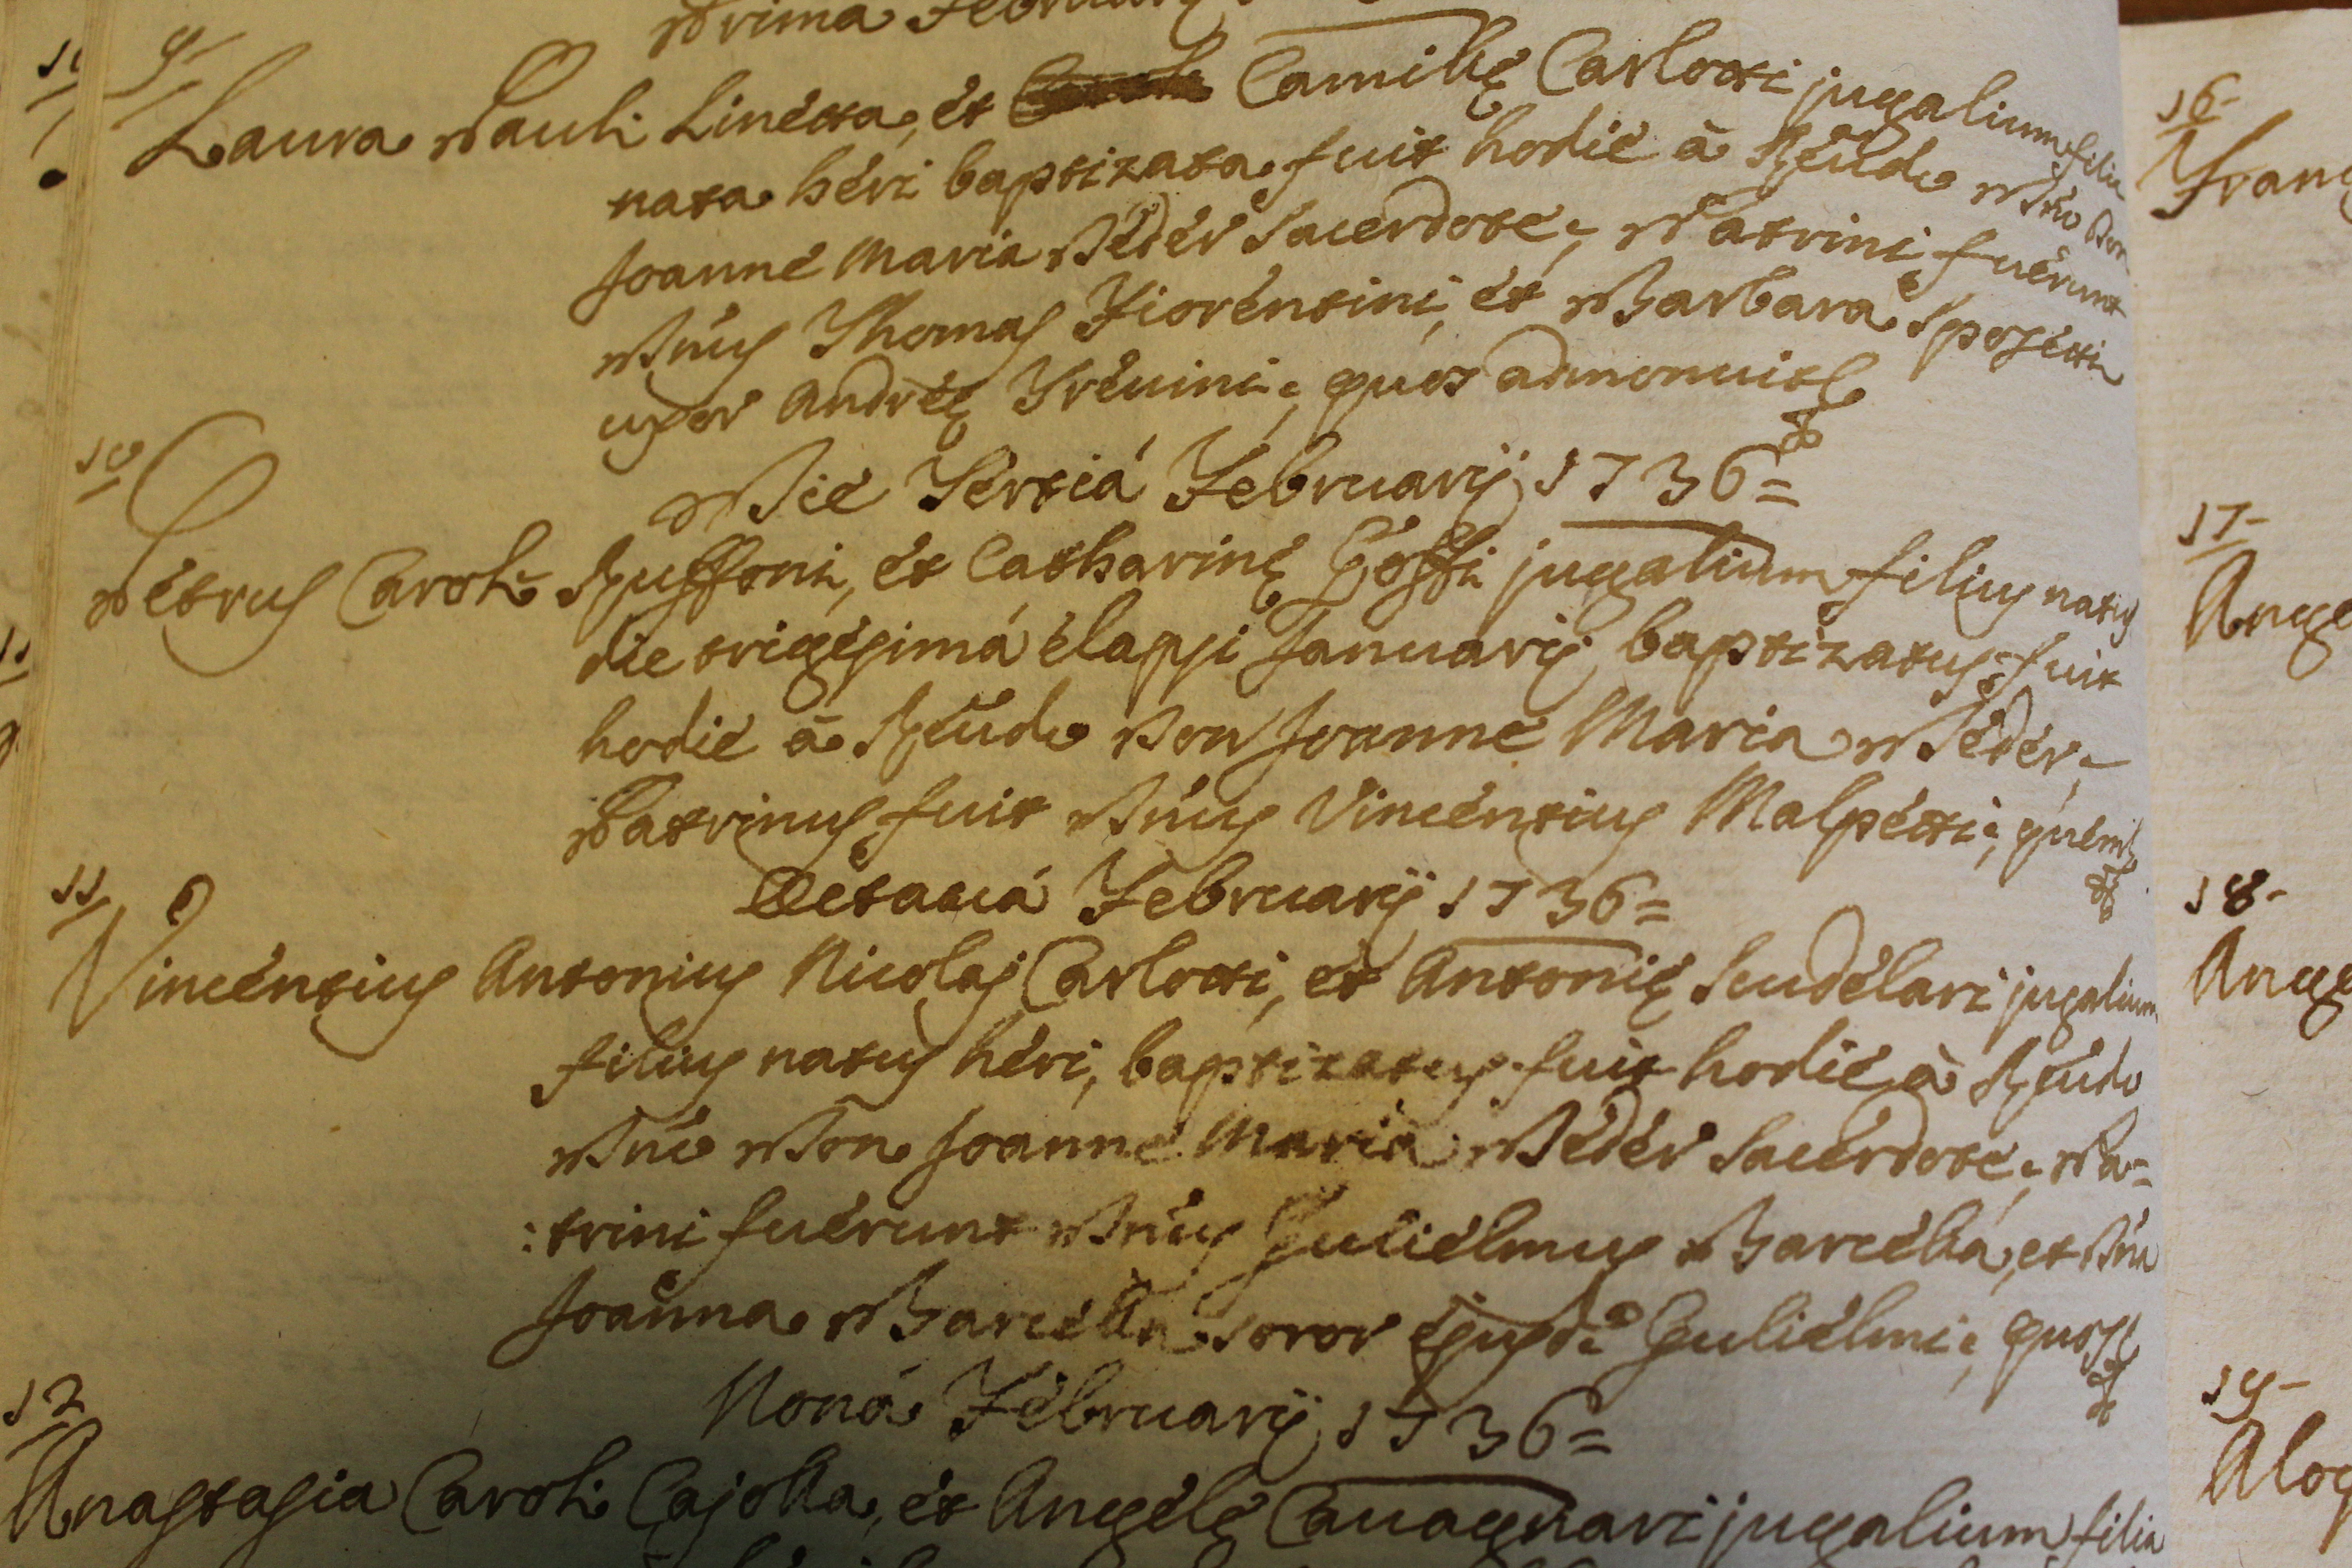 Prima February
9
Laura Pauli Linetta, et Camillę Carlotti jugalium filia
nata heri baptizata fuit hodie à Reudo Dno Don
Joanne Maria Peder Sacerdote; Patrini fuerunt
Dnus Thomas Fiorentini, et Barbara Sposetti
uxor Andreę Trevini; quos admonui &
10
Die Tertiá Februarij 1736=
Petrus Caroli Ruffoni, et Catharinę Goffi jugalium filius natus
die trigesimá elapsi Januarij baptizatus fuit
hodie à Reudo Don Joanne Maria Peder;
Patrinus fuit Dnus Vincentius Malpetti; quem &
11
Octavá Februarij 1736=
Vincentius Antonius Nicolaj Carlotti, et Antonię Scudelari jugalium
filius natus heri, baptizatus fuit hodie à Reudo
Dno Don Joanne Maria Peder Sacerdote; Pa=
:trini fuerunt Dnus Gulielmus Barcella, et Dna
Joanna Barcella soror ejusde Gulielmi; quos &
12
Noná Februarij 1736=
Anastasia Caroli Cajolla, et Angelę Cavagnari jugalium filia
16-
Franc
17-
Ange
18-
Ange
19-
Aloy